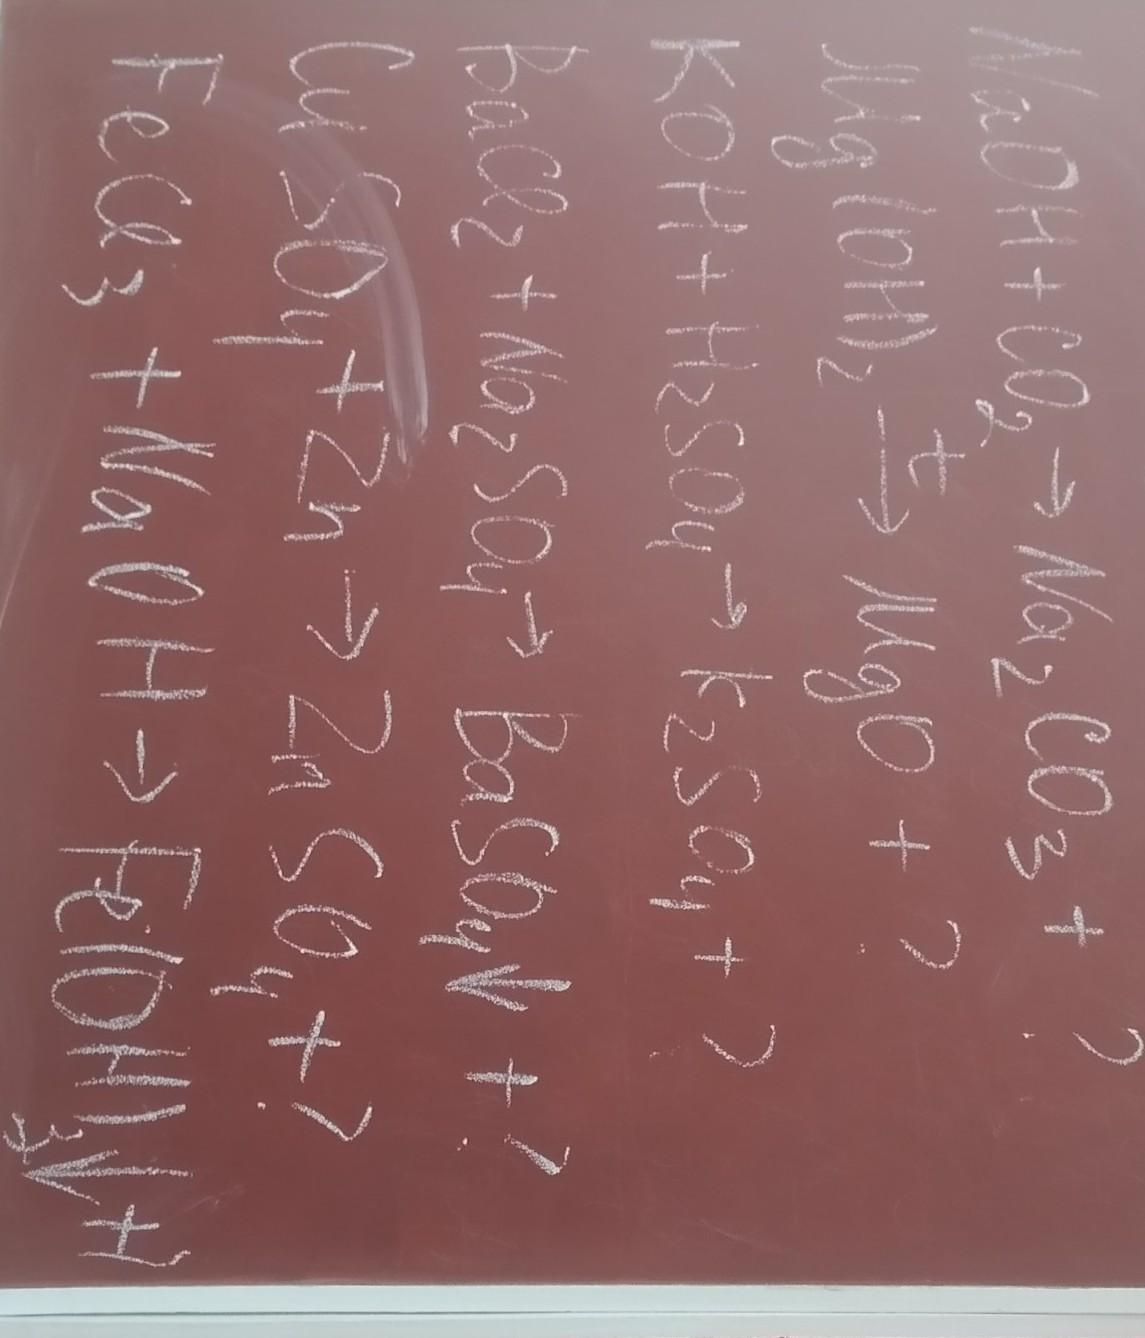 NaOH + CO₂ → Na₂CO₃ + ?
Mg(OH)₂ →ᵗ MgO + ?
KOH + H₂SO₄ → K₂SO₄ + ?
BaCl₂ + Na₂SO₄ → BaSO₄↓ + ?
CuSO₄ + Zn → ZnSO₄ + ?
FeCl₃ + NaOH → Fe(OH)₃↓ + ?